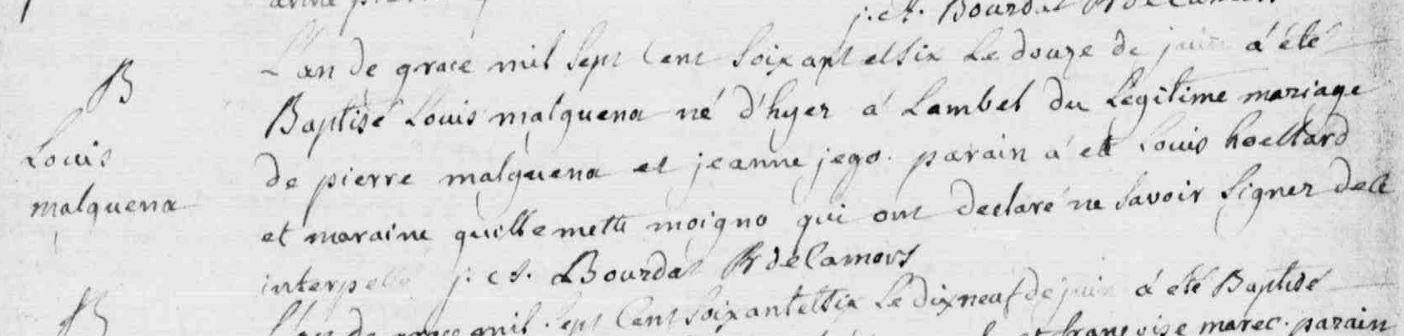 j: ct. Bourdat R de Camors
B
L'an de grace mil sept Cent Soixant et six Le douze de juin á été
Baptisé Louis malquena né d'hyer á Lambel du Legitime mariage
Louis
de pierre malquena et jeanne jego. parain á eté Louis hoellard
malquena
et maraine guillemette moigno qui ont declaré ne savoir Signer de ce
interpellé j: ct. Bourdat R de Camors
B
L'an de grace mil Sept Cent Soixant et six Le dix neuf de juin á eté Baptisé
et françoise marec. parain